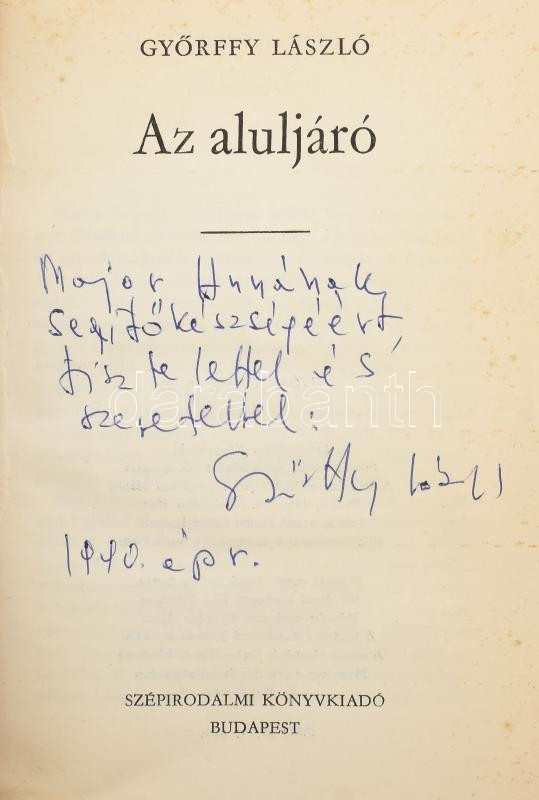 GYŐRFFY LÁSZLÓ
Az aluljáró
Major Annának,
segítőkészségéért,
tisztelettel és
szeretettel:
darabanth
Győrffy László
1990. ápr.
SZÉPIRODALMI KÖNYVKIADÓ
BUDAPEST